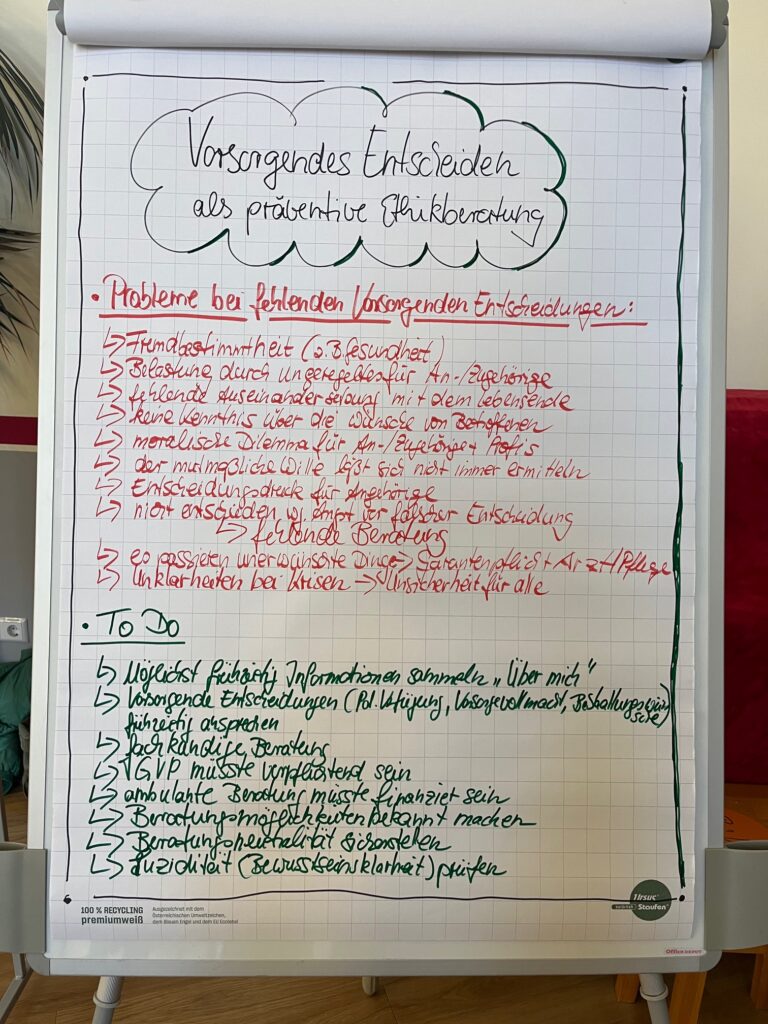 Vorsorgendes Entscheiden
als präventive Ethikberatung
• Probleme bei fehlenden Vorsorgenden Entscheidungen:
↳ Fremdbestimmtheit (z.B. Gesundheit)
↳ Belastung durch Ungeregeltes für An-/Zugehörige
↳ fehlende Auseinandersetzung mit dem Lebensende
↳ keine Kenntnis über die Wünsche von Betroffenen
↳ moralische Dilemma für An-/Zugehörige + Profis
↳ der mutmaßliche Wille läßt sich nicht immer ermitteln
↳ Entscheidungsdruck für Angehörige
↳ nicht entschieden w/ Angst vor falscher Entscheidung
↳ fehlende Beratung
↳ es passieren unerwünschte Dinge -> Garantenpflicht Arzt/Pflege
↳ Unklarheiten bei Krisen -> Unsicherheit für alle
• To Do
↳ Möglichst frühzeitig Informationen sammeln „Über mich"
↳ Vorsorgende Entscheidungen (Pat. Verfügung, Vorsorgevollmacht, Bestattungswünsche)
frühzeitig ansprechen
↳ fachkundige Beratung
↳ GVP müsste verpflichtend sein
↳ ambulante Beratung müsste finanziert sein
↳ Beratungsmöglichkeiten bekannt machen
↳ Beratungsneutralität sicherstellen
↳ Luzidität (Bewusstseinsklarheit) prüfen
100 % RECYCLING
premiumweiß
Ausgezeichnet mit dem
Österreichischen Umweltzeichen,
dem Blauen Engel und dem EU Ecolabel
Ursus
natürlich Staufen
Office DEPOT